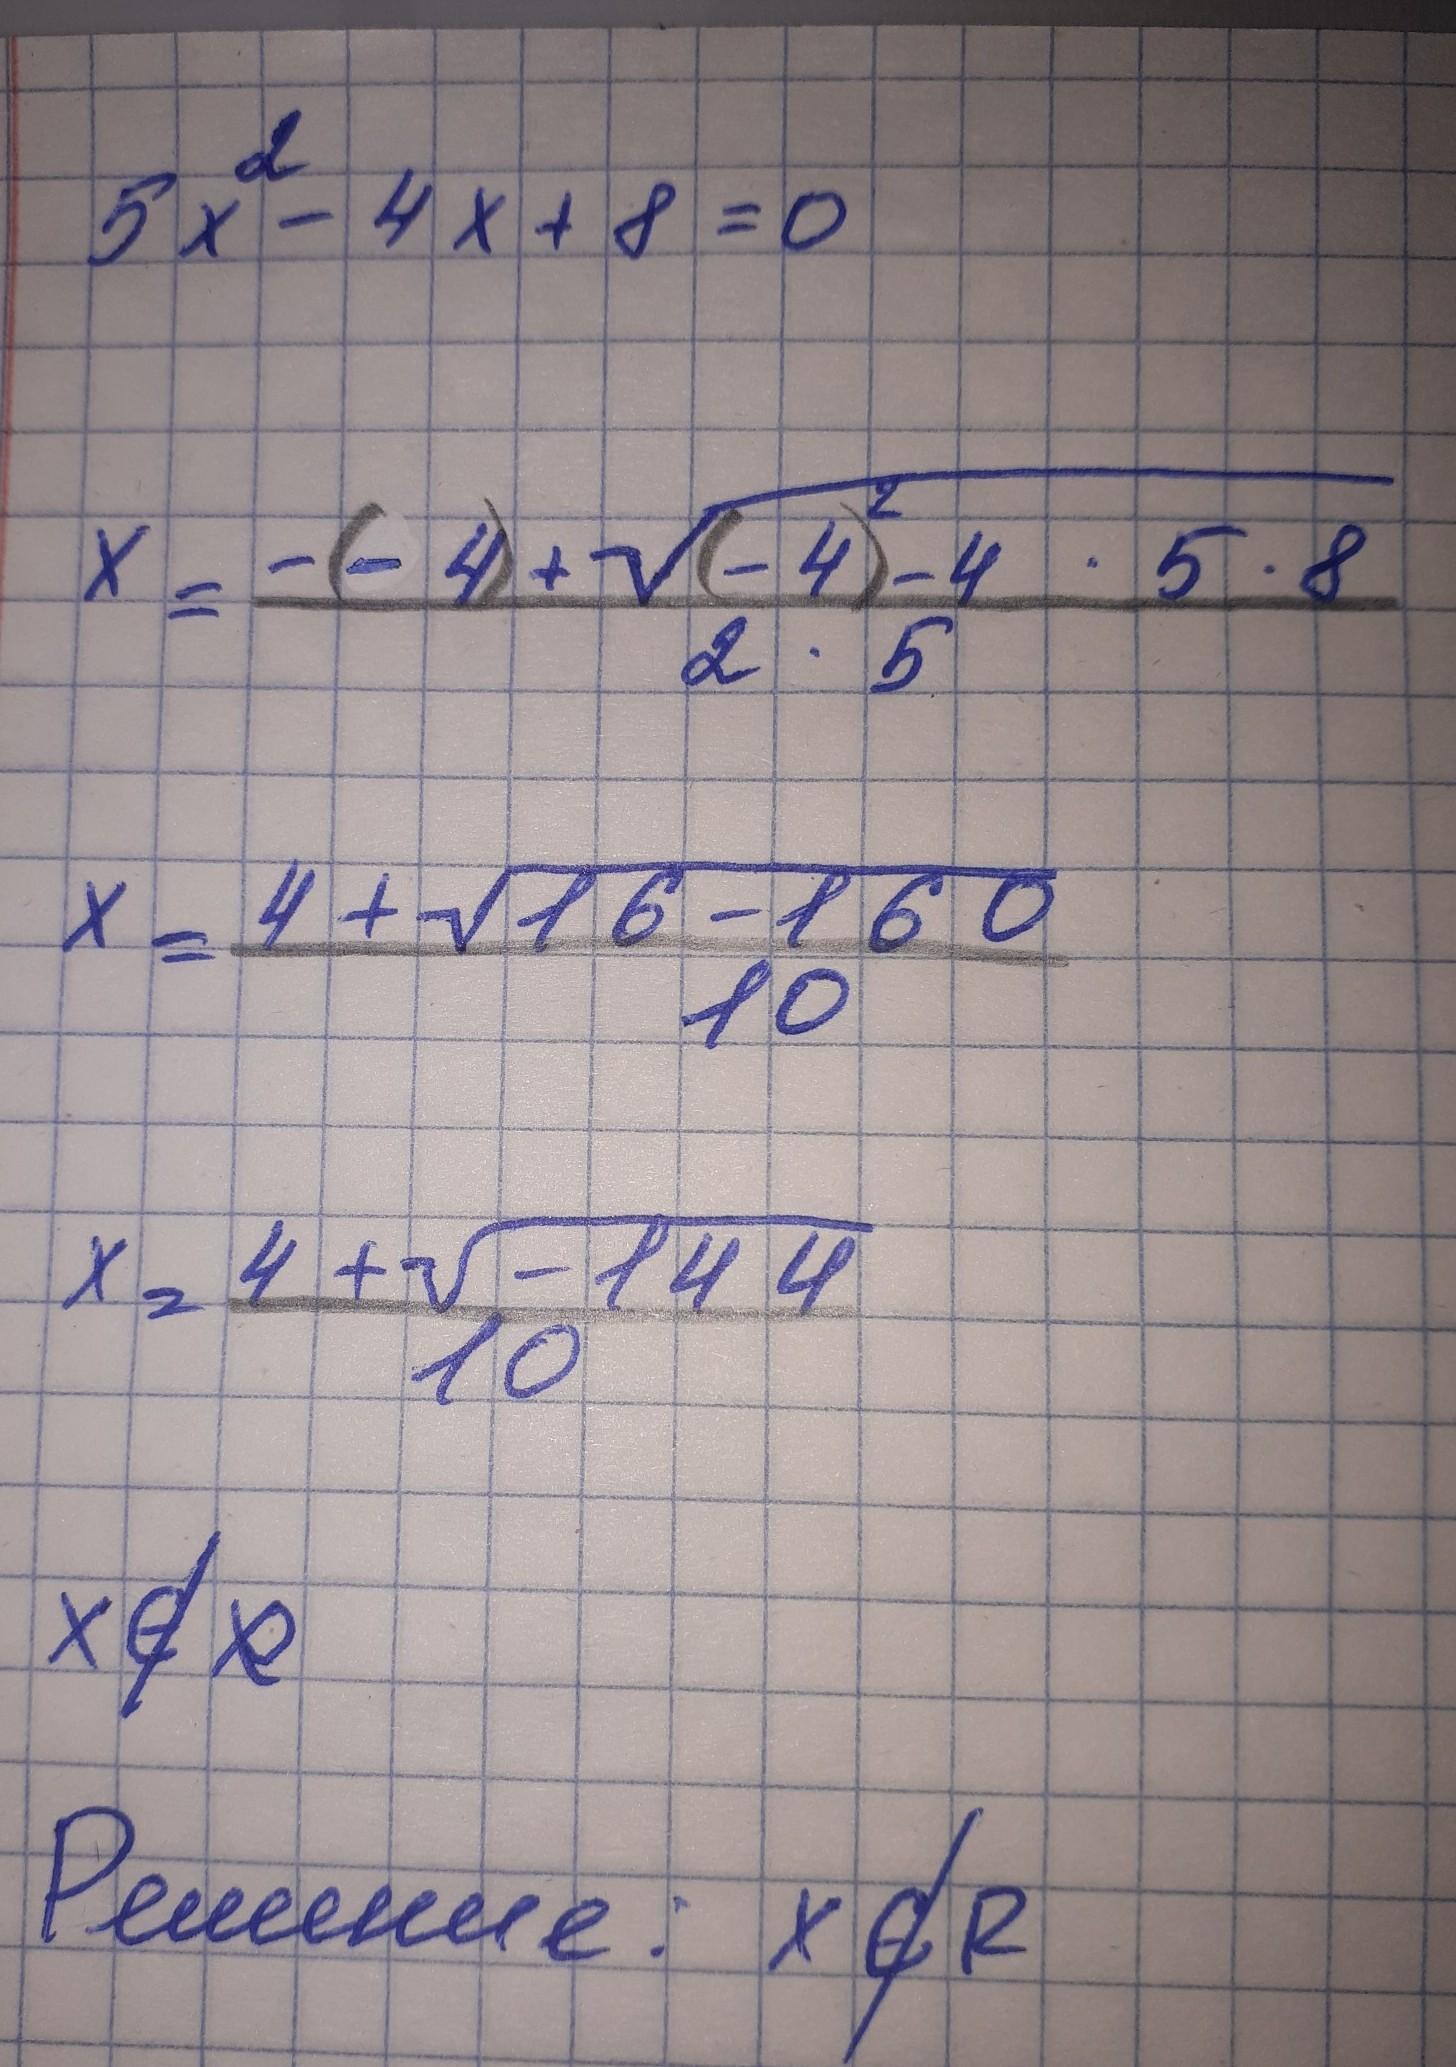 5x² - 4x + 8 = 0
x = (-(-4) + √((-4)² - 4 · 5 · 8)) / (2 · 5)
x = (4 + √(16 - 160)) / 10
x = (4 + √(-144)) / 10
x ∉ R
Решение: x ∉ R